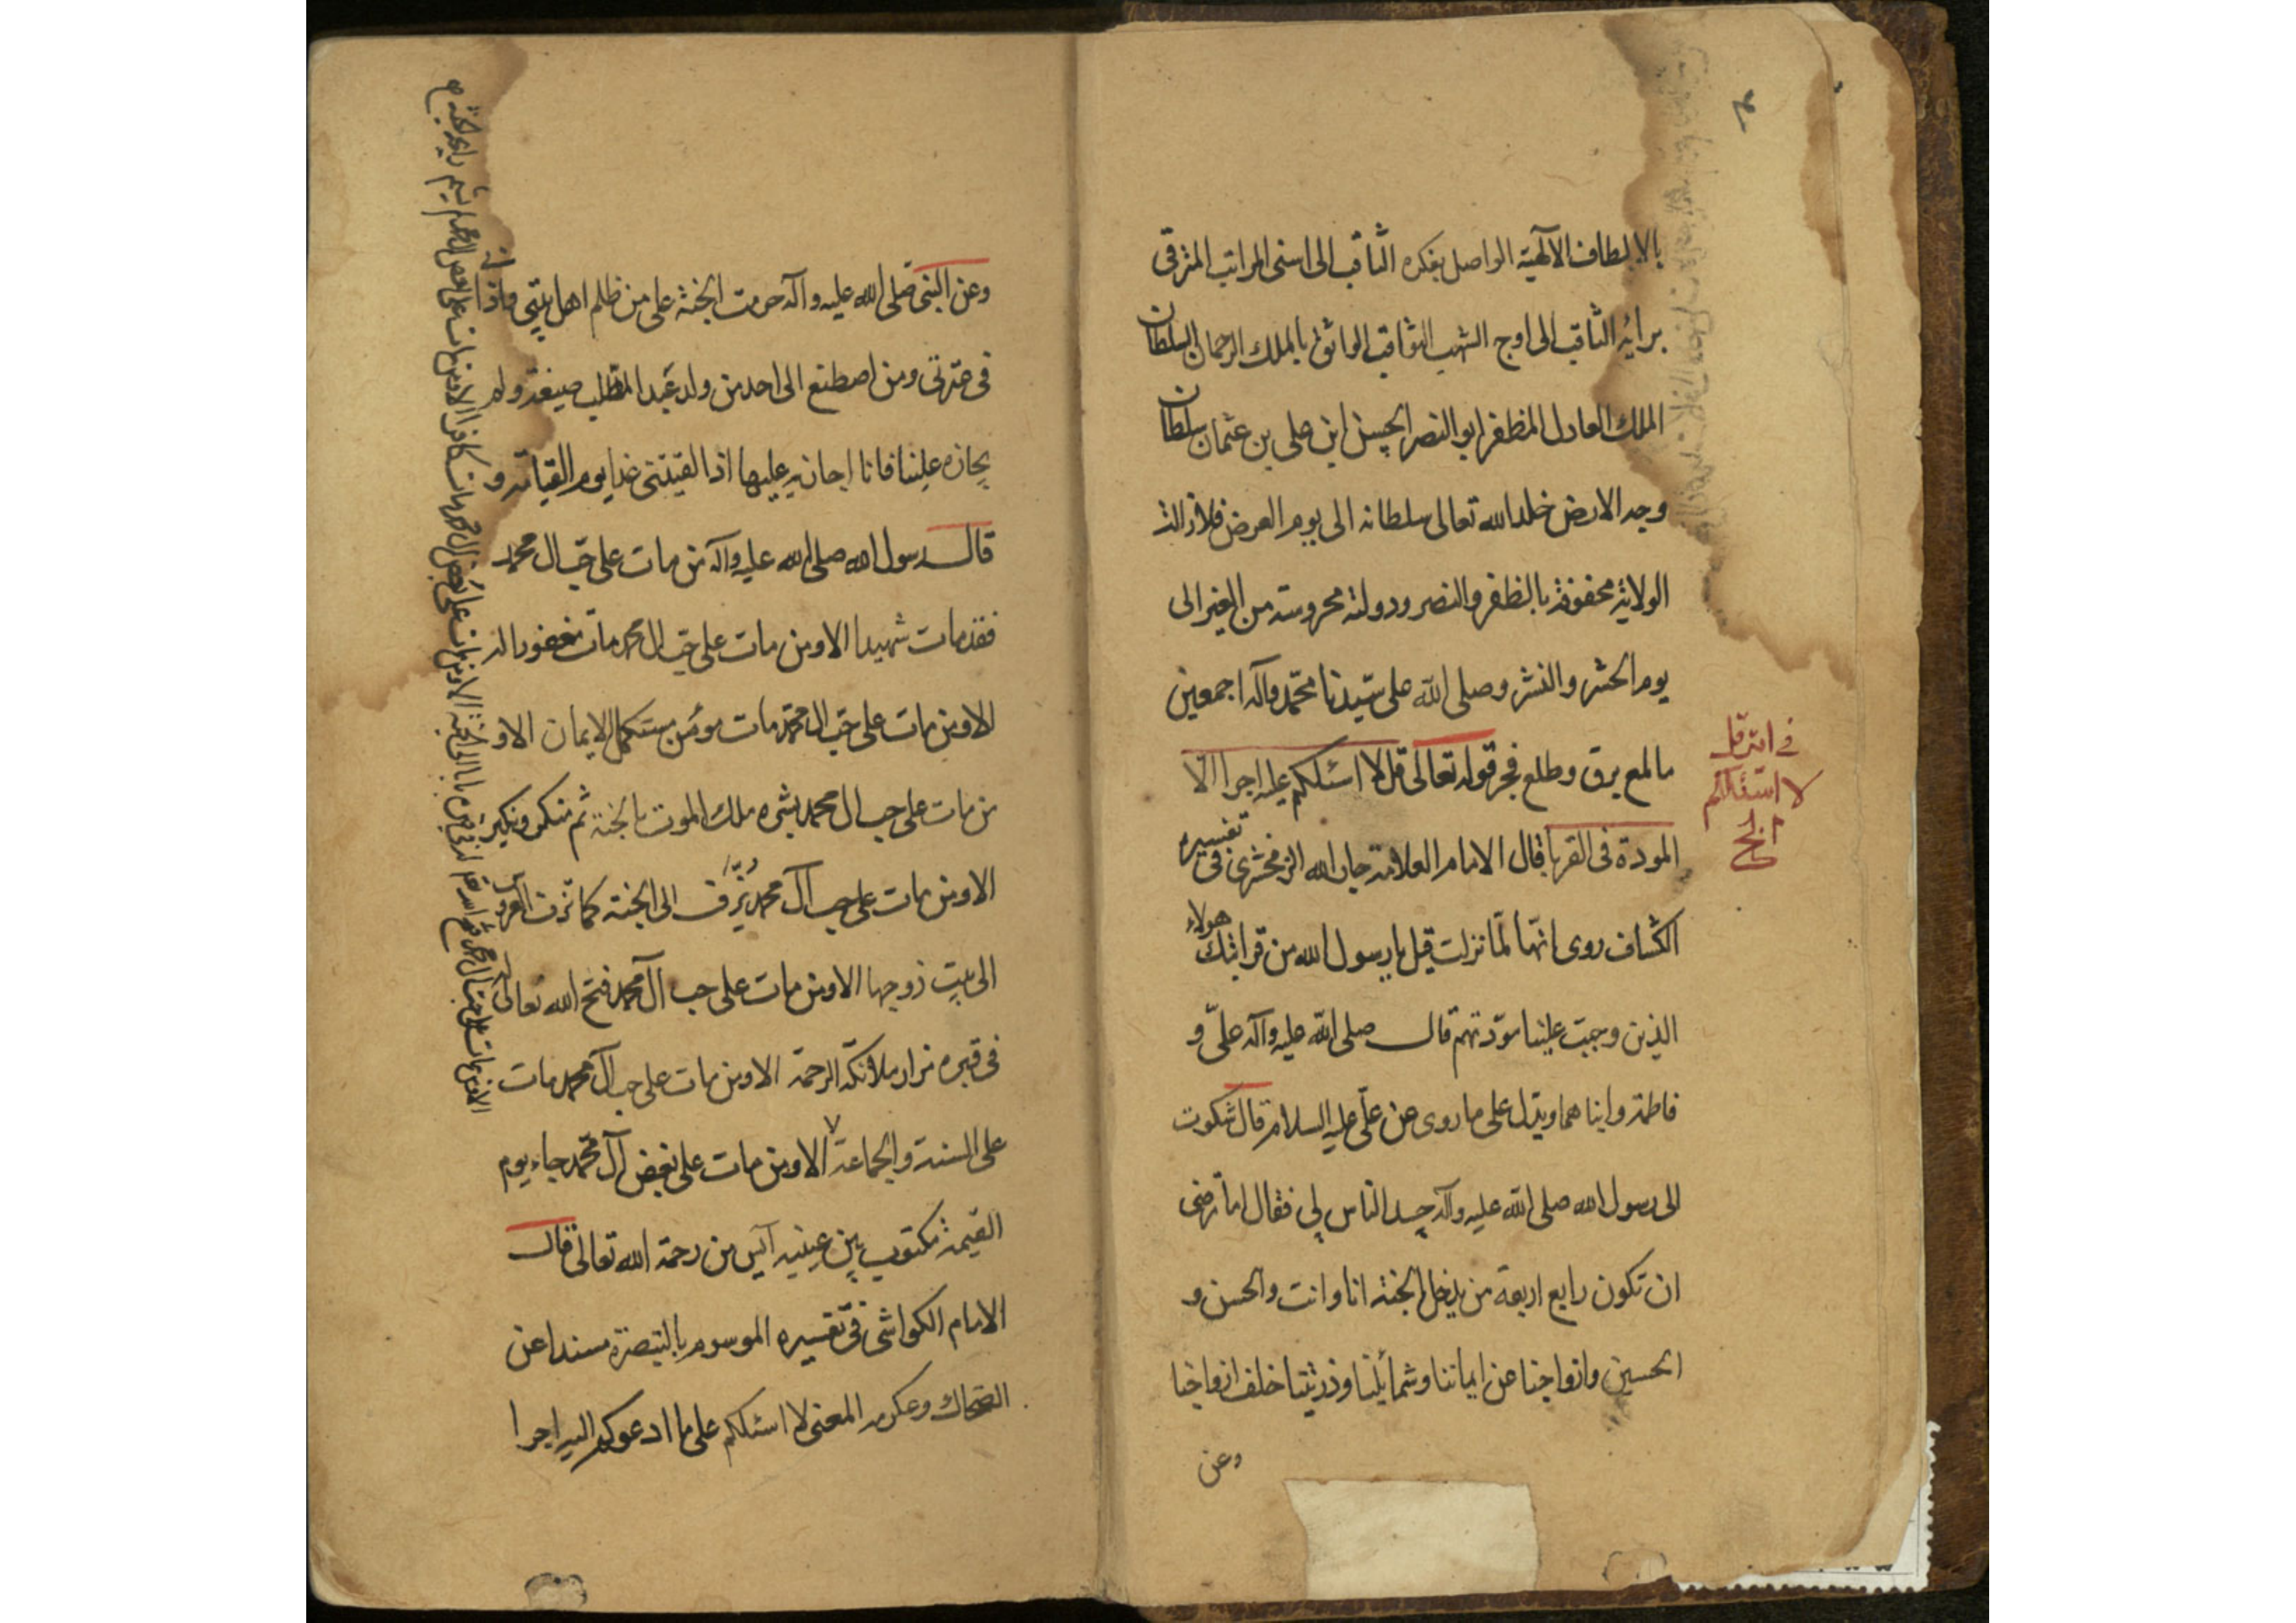 بالالطاف الآلهية الواصل بفكره الثاقب الى اسنى المراتب المترقى
برايه الثاقب الى اوج الشهب الثواقب الواثق بالملك الرحمان السلطان
الملك العادل المظفر ابو النصر الحسن ابن على بن عثمان سلطان
وجه الارض خلد الله تعالى سلطانه الى يوم العرض فلازالت
الولاية محفوفة بالظفر والنصر ودولته محروسة من الغير الى
يوم الحشر والنشر وصلى الله على سيدنا محمد وآله اجمعين
مالمع برق وطلع فجر قوله تعالى قل لا اسئلكم عليه اجرا الا
المودة فى القربا قال الامام العلامة جار الله الزمخشرى فى تفسيره
الكشاف روى انها لما نزلت قيل يا رسول الله من قرابتك هولاء
الذين وجبت علينا مودتهم قال صلى الله عليه وآله على و
فاطمة وابناهما ويدل على ما روى عن على عليه السلام قال شكوت
الى رسول الله صلى الله عليه وآله حسد الناس لى فقال اما ترضى
ان تكون رابع اربعة من يدخل الجنة انا وانت والحسن و
الحسين وازواجنا عن ايماننا وشمائلنا وذريتنا خلف ازواجنا
وعن
فى آية قل
لا اسئلكم
الخ
وعن النبى صلى الله عليه وآله حرمت الجنة على من ظلم اهل بيتى واذانى
فى عترتى ومن اصطنع الى احد من ولد عبد المطلب صيغة ولم
يجازه علينا فانا اجازيه عليها اذا لقيتنى غدا يوم القيامة و
قال رسول الله صلى الله عليه وآله من مات على حب ال محمد
فقد مات شهيدا الا ومن مات على حب ال محمد مات مغفورا له
الا ومن مات على حب ال محمد مات مؤمن مستكمل الايمان الا و
من مات على حب ال محمد بشره ملك الموت بالجنة ثم منكر ونكير
الا ومن مات على حب آل محمد يُزّف الى الجنة كما تزف العروس
الى بيت زوجها الا ومن مات على حب آل محمد فتح الله تعالى له
فى قبره مزار ملائكة الرحمة الا ومن مات على حب آل محمد مات
على السنة والجماعة الا ومن مات على بغض آل محمد جاء يوم
القيمة مكتوب بين عينيه آيس من رحمة الله تعالى قال
الامام الكواشى فى تفسيره الموسوم بالتبصرة مسندا عن
الضحاك وعكرمه المعنى لا اسئلكم على ما ادعوكم اليه اجرا